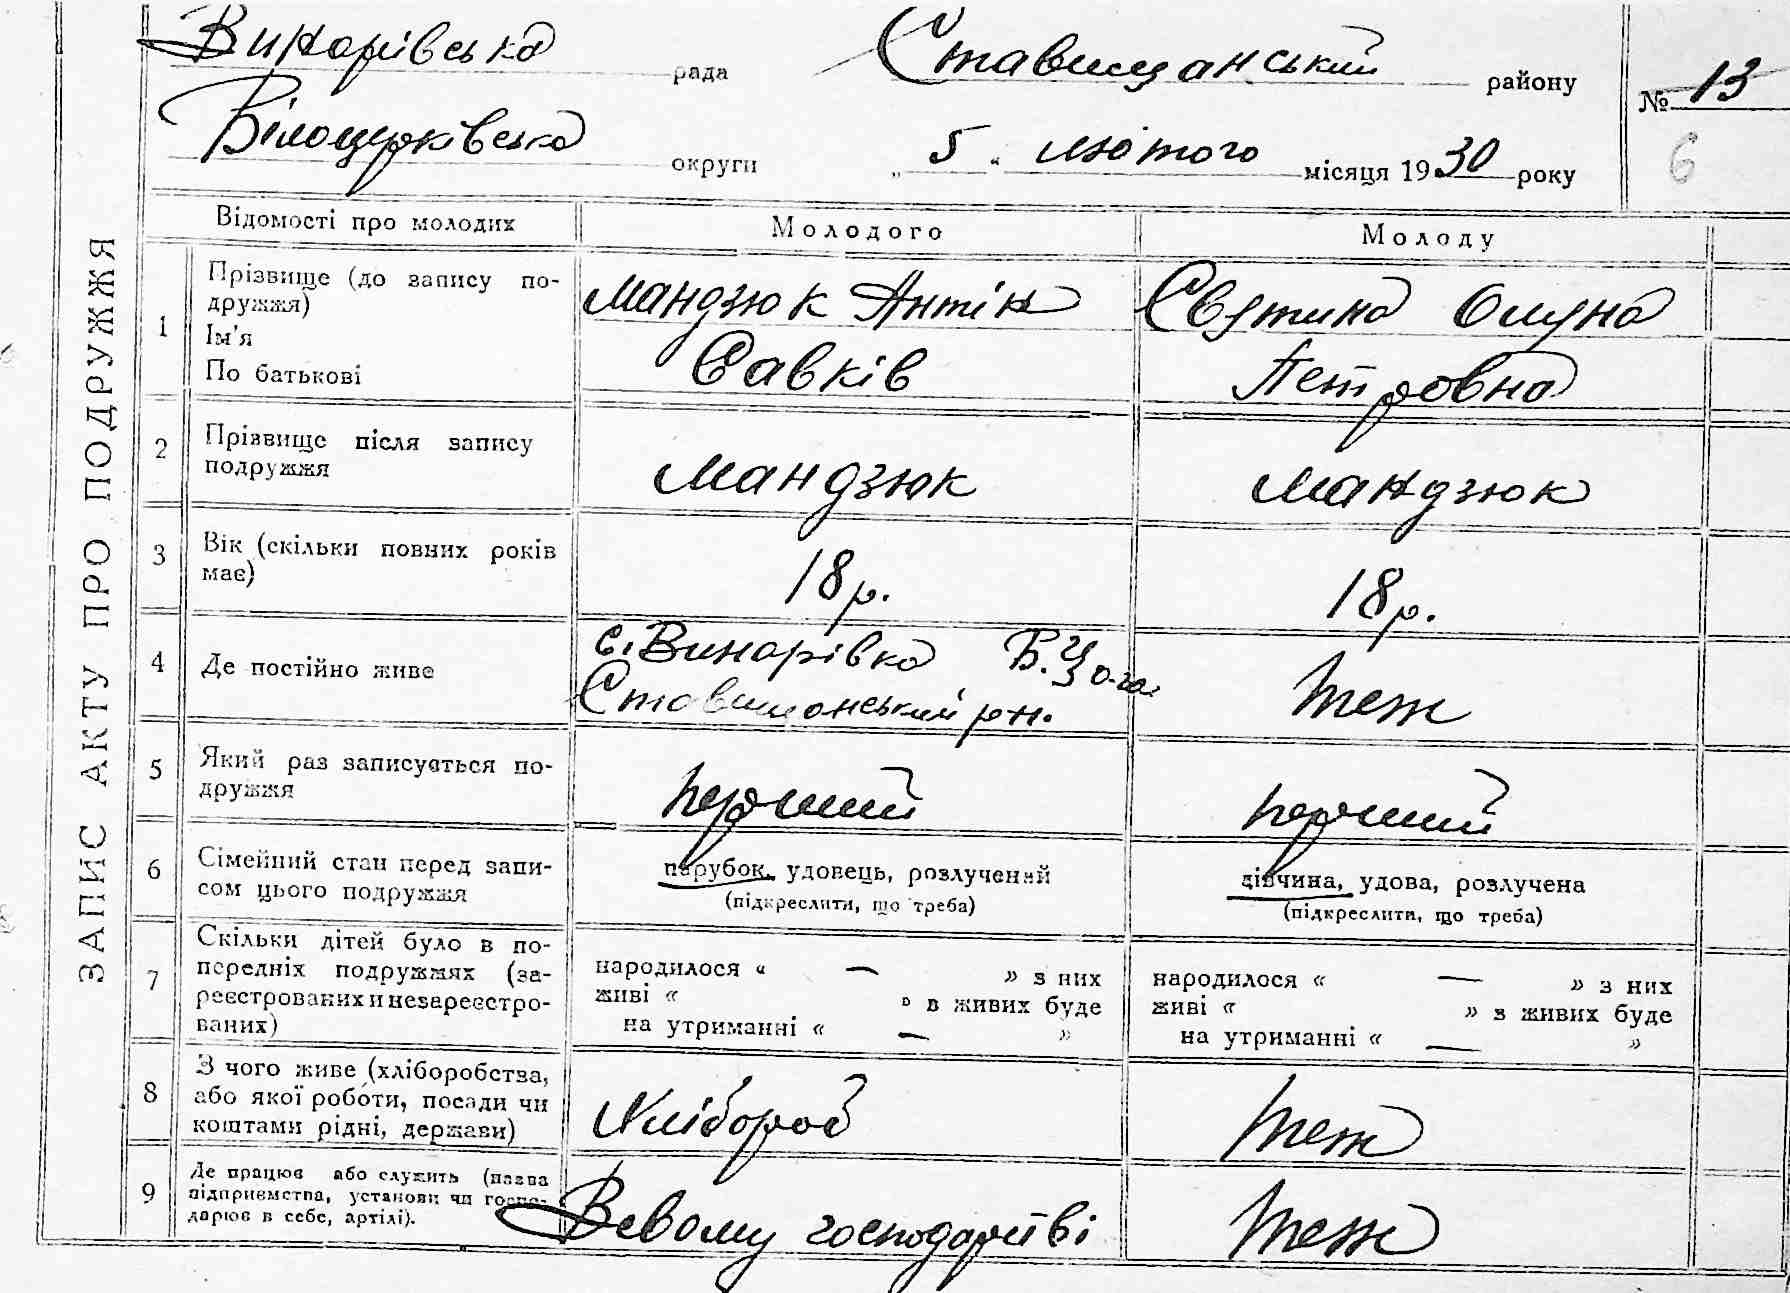 Винарівська рада Ставищанський району № 13
Білоцерківська округи „ 5 “ лютого місяця 1930 року 6
ЗАПИС АКТУ ПРО ПОДРУЖЖЯ
Відомості про молодих Молодого Молоду
1 Прізвище (до запису по-
дружжя)
Ім'я
По батькові
Мандзюк Антін
Савків
Петровна
2 Прізвище після запису
подружжя
Мандзюк Мандзюк
3 Вік (скільки повних років
має)
18 р. 18 р.
4 Де постійно живе
с. Винарівка Б.Ц.
Ставищанський рн.
теж
5 Який раз записується по-
дружжя
перший перший
6 Сімейний стан перед запи-
сом цього подружжя
парубок, удовець, розлучений
(підкреслити, що треба)
дівчина, удова, розлучена
(підкреслити, що треба)
7 Скільки дітей було в по-
передніх подружжях (за-
реєстрованих и незареєстро-
ваних)
народилося “ — » з них
живі “ » в живих буде
на утриманні “ — »
народилося “ — » з них
живі “ » з живих буде
на утриманні “ — »
8 З чого живе (хліборобства,
або якої роботи, посади чи
коштами рідні, держави)
Хлібороб теж
9 Де працює або служить (назва
підприємства, установи чи госпо-
дарює в себе, артілі).
Всвому господарстві теж